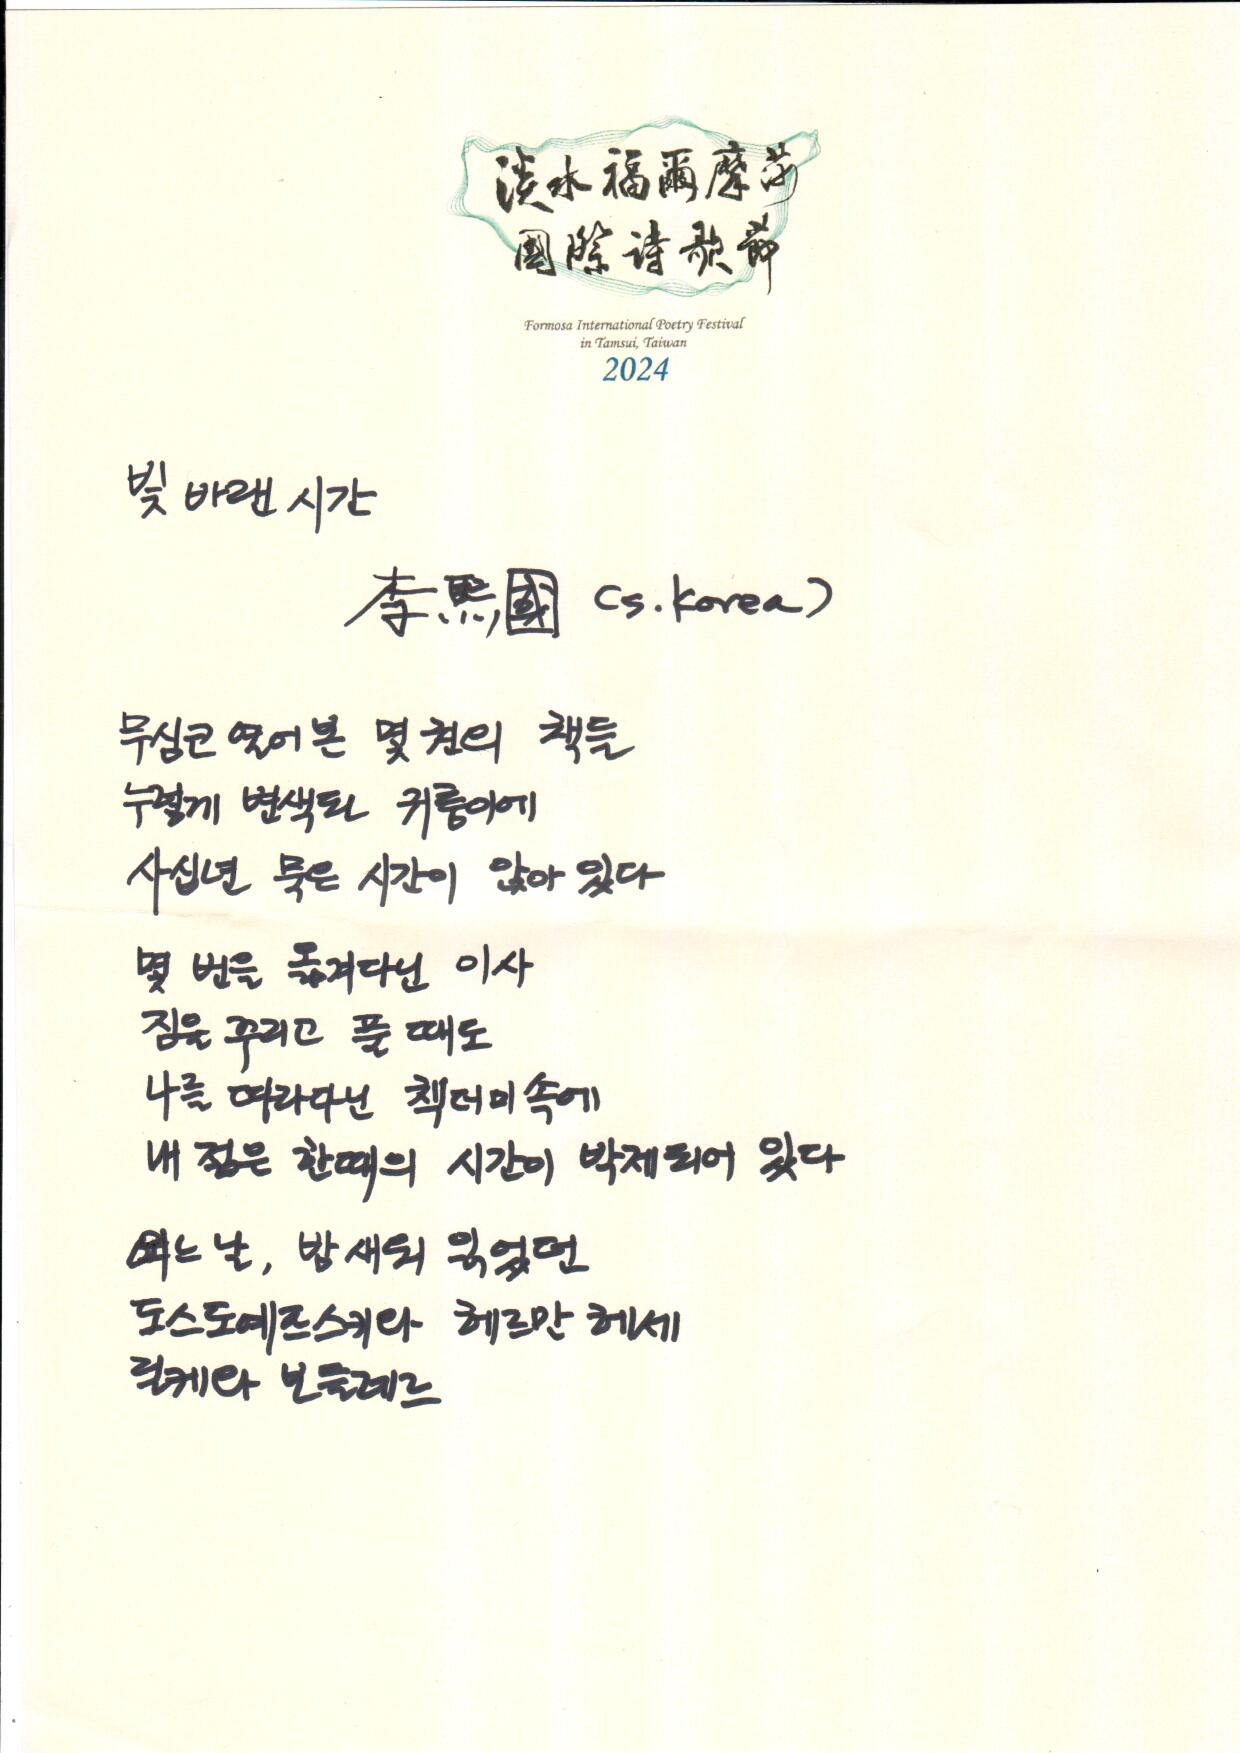 淡水福爾摩莎
國際詩歌節
Formosa International Poetry Festival
in Tamsui, Taiwan
2024
빛 바랜 시간
李熙國 (S. Korea)
무심코 열어 본 몇 권의 책들
누렇게 변색된 귀퉁이에
사십년 묵은 시간이 앉아 있다
몇 번을 옮겨다닌 이사
짐을 꾸리고 풀 때도
나를 따라다닌 책더미 속에
내 젊은 한때의 시간이 박제되어 있다
어느 날, 밤새워 읽었던
도스도예프스키와 헤르만 헤세
릴케와 보들레르